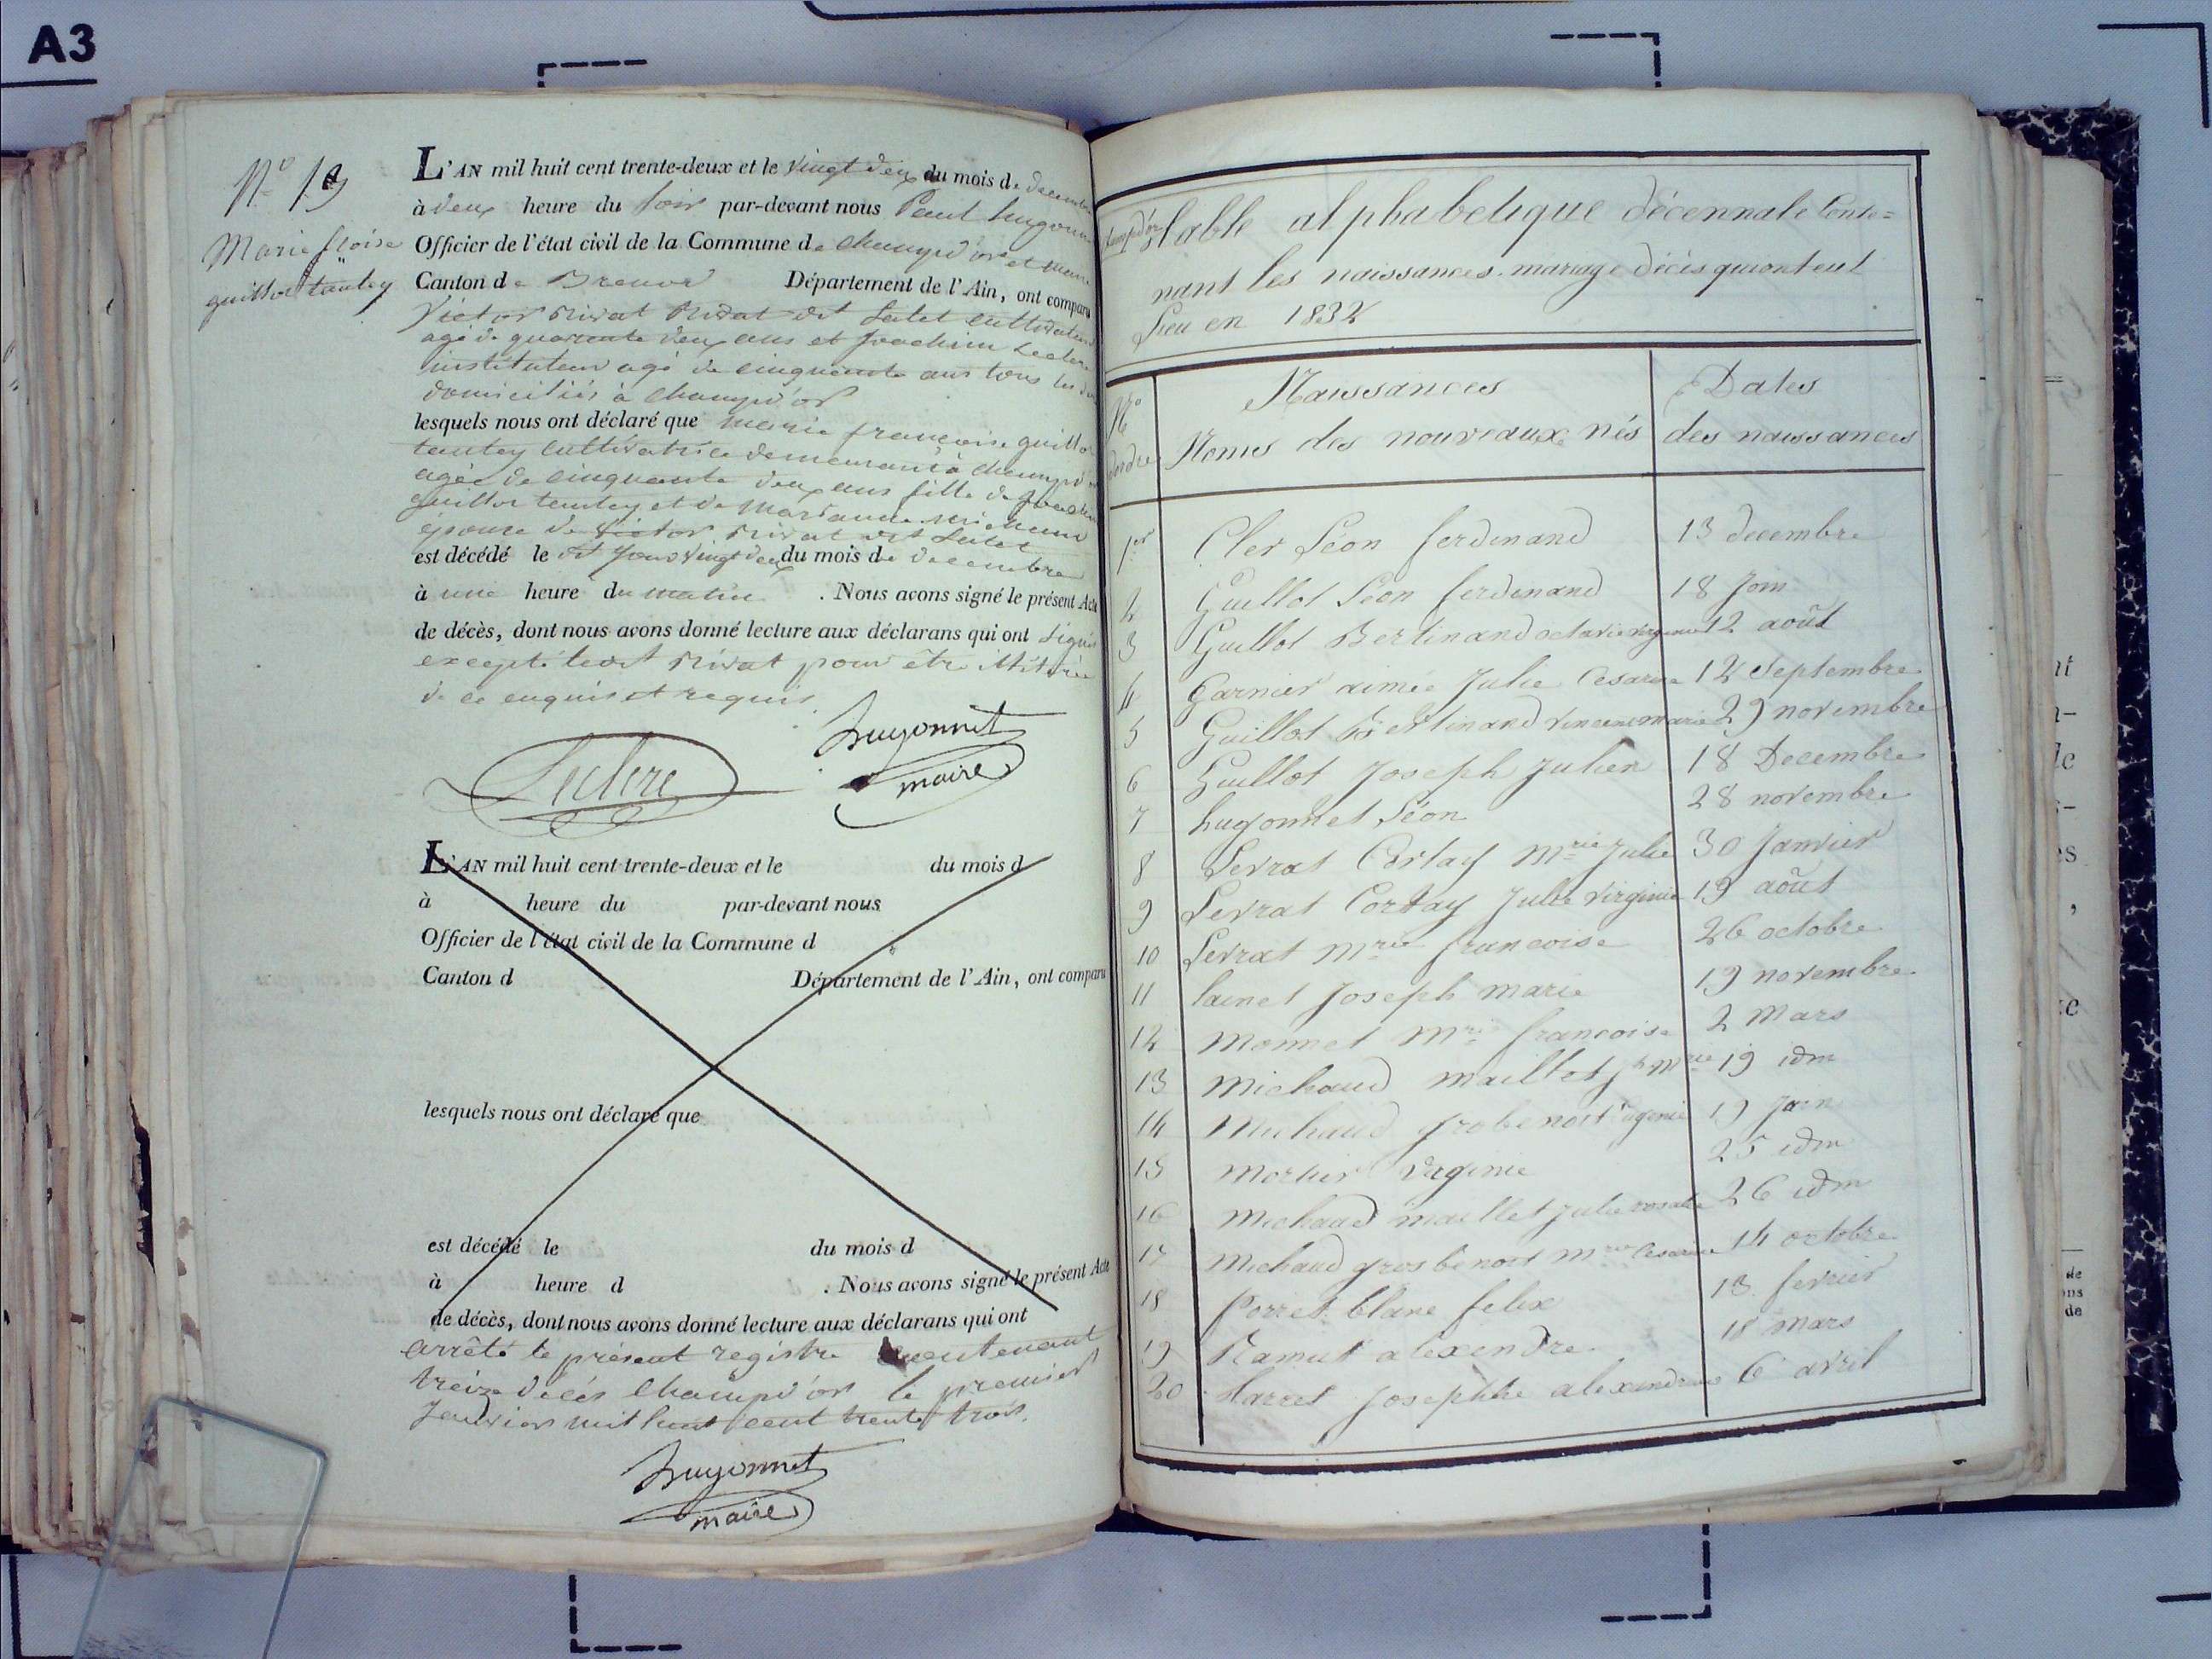 A3
N° 13
Marie f.çoise
guillot tantey
L'AN mil huit cent trente-deux et le vingt deux du mois de decembre
à deux heure du soir par-devant nous Paul hugonnet
Officier de l'état civil de la Commune de Champd'or et maire
Canton de Brenod Département de l'Ain, ont comparu
Victor nivat dit cultivateur
agé de quarante deux ans et Joachim Leclere
instituteur agé de cinquante ans tous les deux
domiciliés à Champd'or
lesquels nous ont déclaré que marie francoise guillot
tantey cultivatrice demeurant à Champd'or
agée de cinquante deux ans fille de
guillot tantey et de Marianne
épouse de Victor nivat dit
est décédé le dit jour vingt deux du mois de decembre
à une heure du matin . Nous avons signé le présent Acte
de décès, dont nous avons donné lecture aux déclarans qui ont signé
excepté ledit nivat pour être illitéré
de ce enquis et requis
Leclere
hugonnet
maire
L'AN mil huit cent trente-deux et le du mois d
à heure du par-devant nous
Officier de l'état civil de la Commune d
Canton d Département de l'Ain, ont comparu
lesquels nous ont déclaré que
est décédé le du mois d
à heure d . Nous avons signé le présent Acte
de décès, dont nous avons donné lecture aux déclarans qui ont
arrêté le présent registre contenant
treize décés Champd'or le premier
Janvier mil huit cent trente trois.
hugonnet
maire
Champd'or table alphabetique décennale Conte=
nant les naissances. mariage décès qui ont eut
Lieu en 1832
N° dordre
Naissances
Noms des nouveaux nés
Dates
des naissances
1er Cler Léon ferdinand 13 decembre
2 Guillot Léon ferdinand 18 Join
3 Guillot Bertinand octavie virginie 12 août
4 Garnier aimée Julie Cesarine 12 Septembre
5 Guillot Bertinand marie 29 novembre
6 Guillot Joseph Julien 18 Decembre
7 hugonnet Léon 28 novembre
8 Levrat Cortay Mrie Julie 30 Janvier
9 Levrat Cortay Julie Virginie 19 août
10 Levrat Mrie francoise 26 octobre
11 lainet Joseph marie 19 novembre
12 Monnet Mrie francoise 2 Mars
13 Michaud maillet jh Mrie 19 idm
14 Michaud grobenoit Eugenie 19 Join
15 Mortier Virginie 25 idm
16 Michaud maillet Julie rosalie 26 idm
17 Michaud grosbenoit Mrie Cesarine 14 octobre
18 Porret blanc felix 13 fevrier
19 Ramut alexendre 18 mars
20 Harret Josephte alexandrine 6 avril